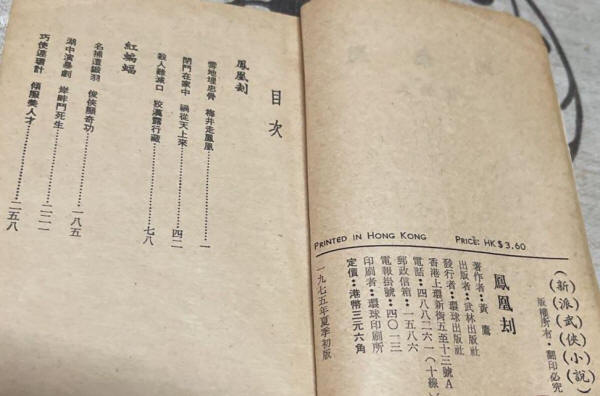 目次
鳳凰刦
雪地埋忠骨　梅井走鳳凰………一
閉門在家中　禍從天上來………四二
殺人難滅口　妝漢露行藏………七八
紅蝙蝠
名捕遭鎩羽　俊俠顯奇功
湖中演尋劇　岸畔鬥死生………一八五
巧使連環計　傾服美人才………二二一
二五八
PRINTED IN HONG KONG
PRICE: HK$3.60
(新派武俠小說)
版權所有・翻印必究
鳳凰刦
著作者：黃鷹
出版者：武林出版社
發行者：環球出版社
香港上環新街五至十三號A
電話：四八八二六一(十線)
郵政信箱：一五八六
電報掛號：四〇一三
印刷者：環球印刷所
定價：港幣三元六角
一九七五年夏季初版